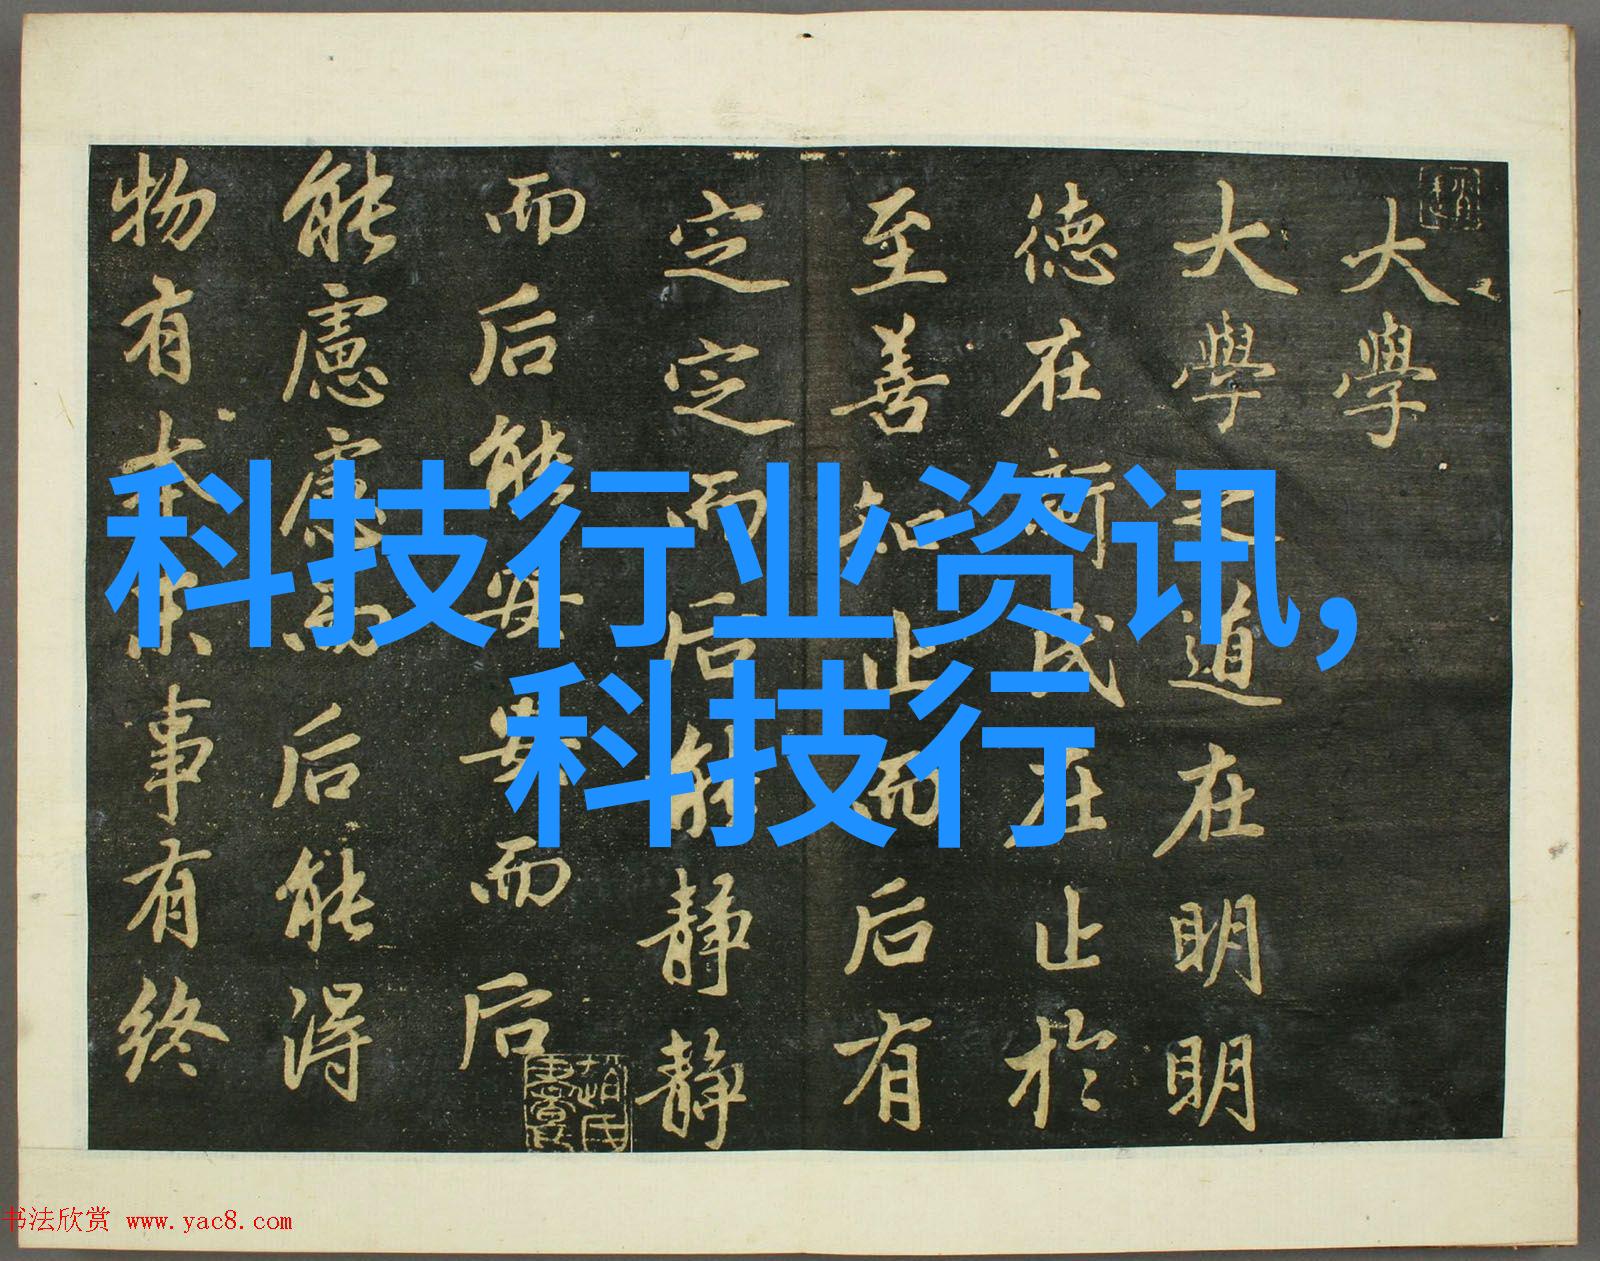 大學
大學之道在明明
德在新民在止於
至善知止而后有
定定而后能静静
而后能安安而后
能慮慮而后能得
物有本末事有終
科技行业资讯,
科技行
书法欣赏 www.yac8.com